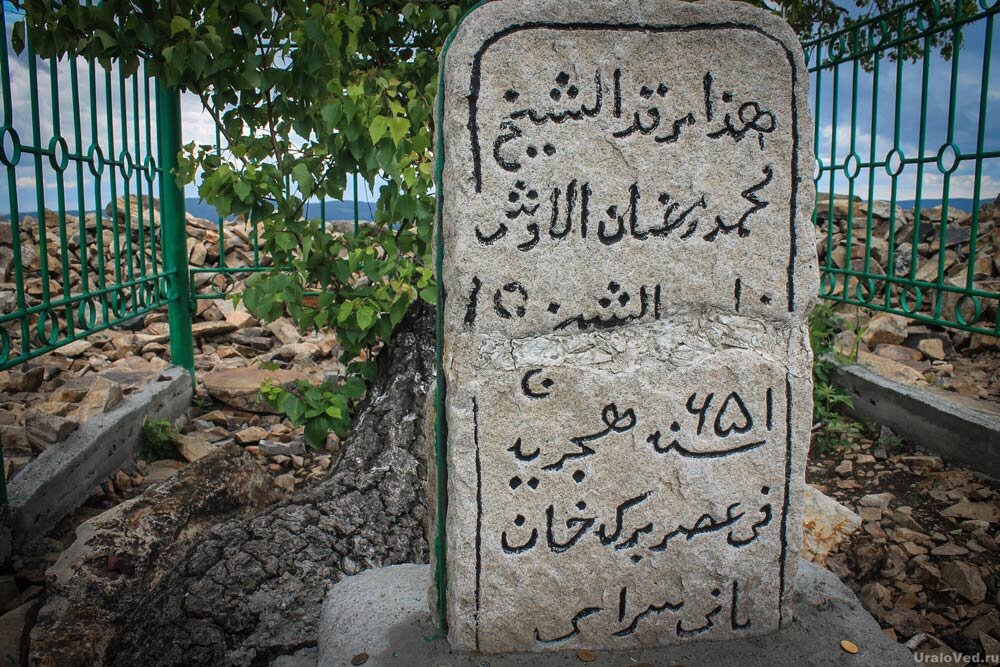 هذا مرقد الشيخ
محمد رمضان الاوشى
١٠ الشهر ١٥
٦٥١
سنه هجريه
فى عصر بركه خان
بانى سراى
UraloVed.ru